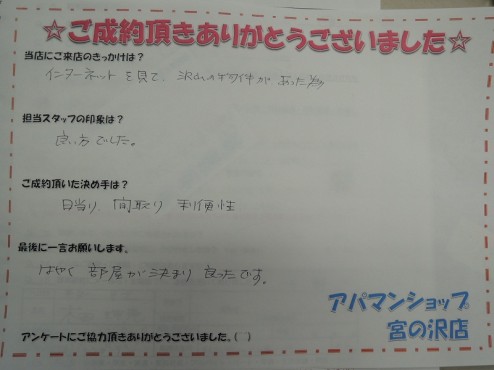 ☆ご成約頂きありがとうございました☆
当店にご来店のきっかけは?
インターネットを見て、沢山の物件があった為
担当スタッフの印象は?
良い方でした。
ご成約頂いた決め手は?
日当り、間取り 利便性
最後に一言お願いします。
はやく 部屋が決まり 良ったです。
アパマンショップ
宮の沢店
アンケートにご協力頂きありがとうございました。(⌒⌒)